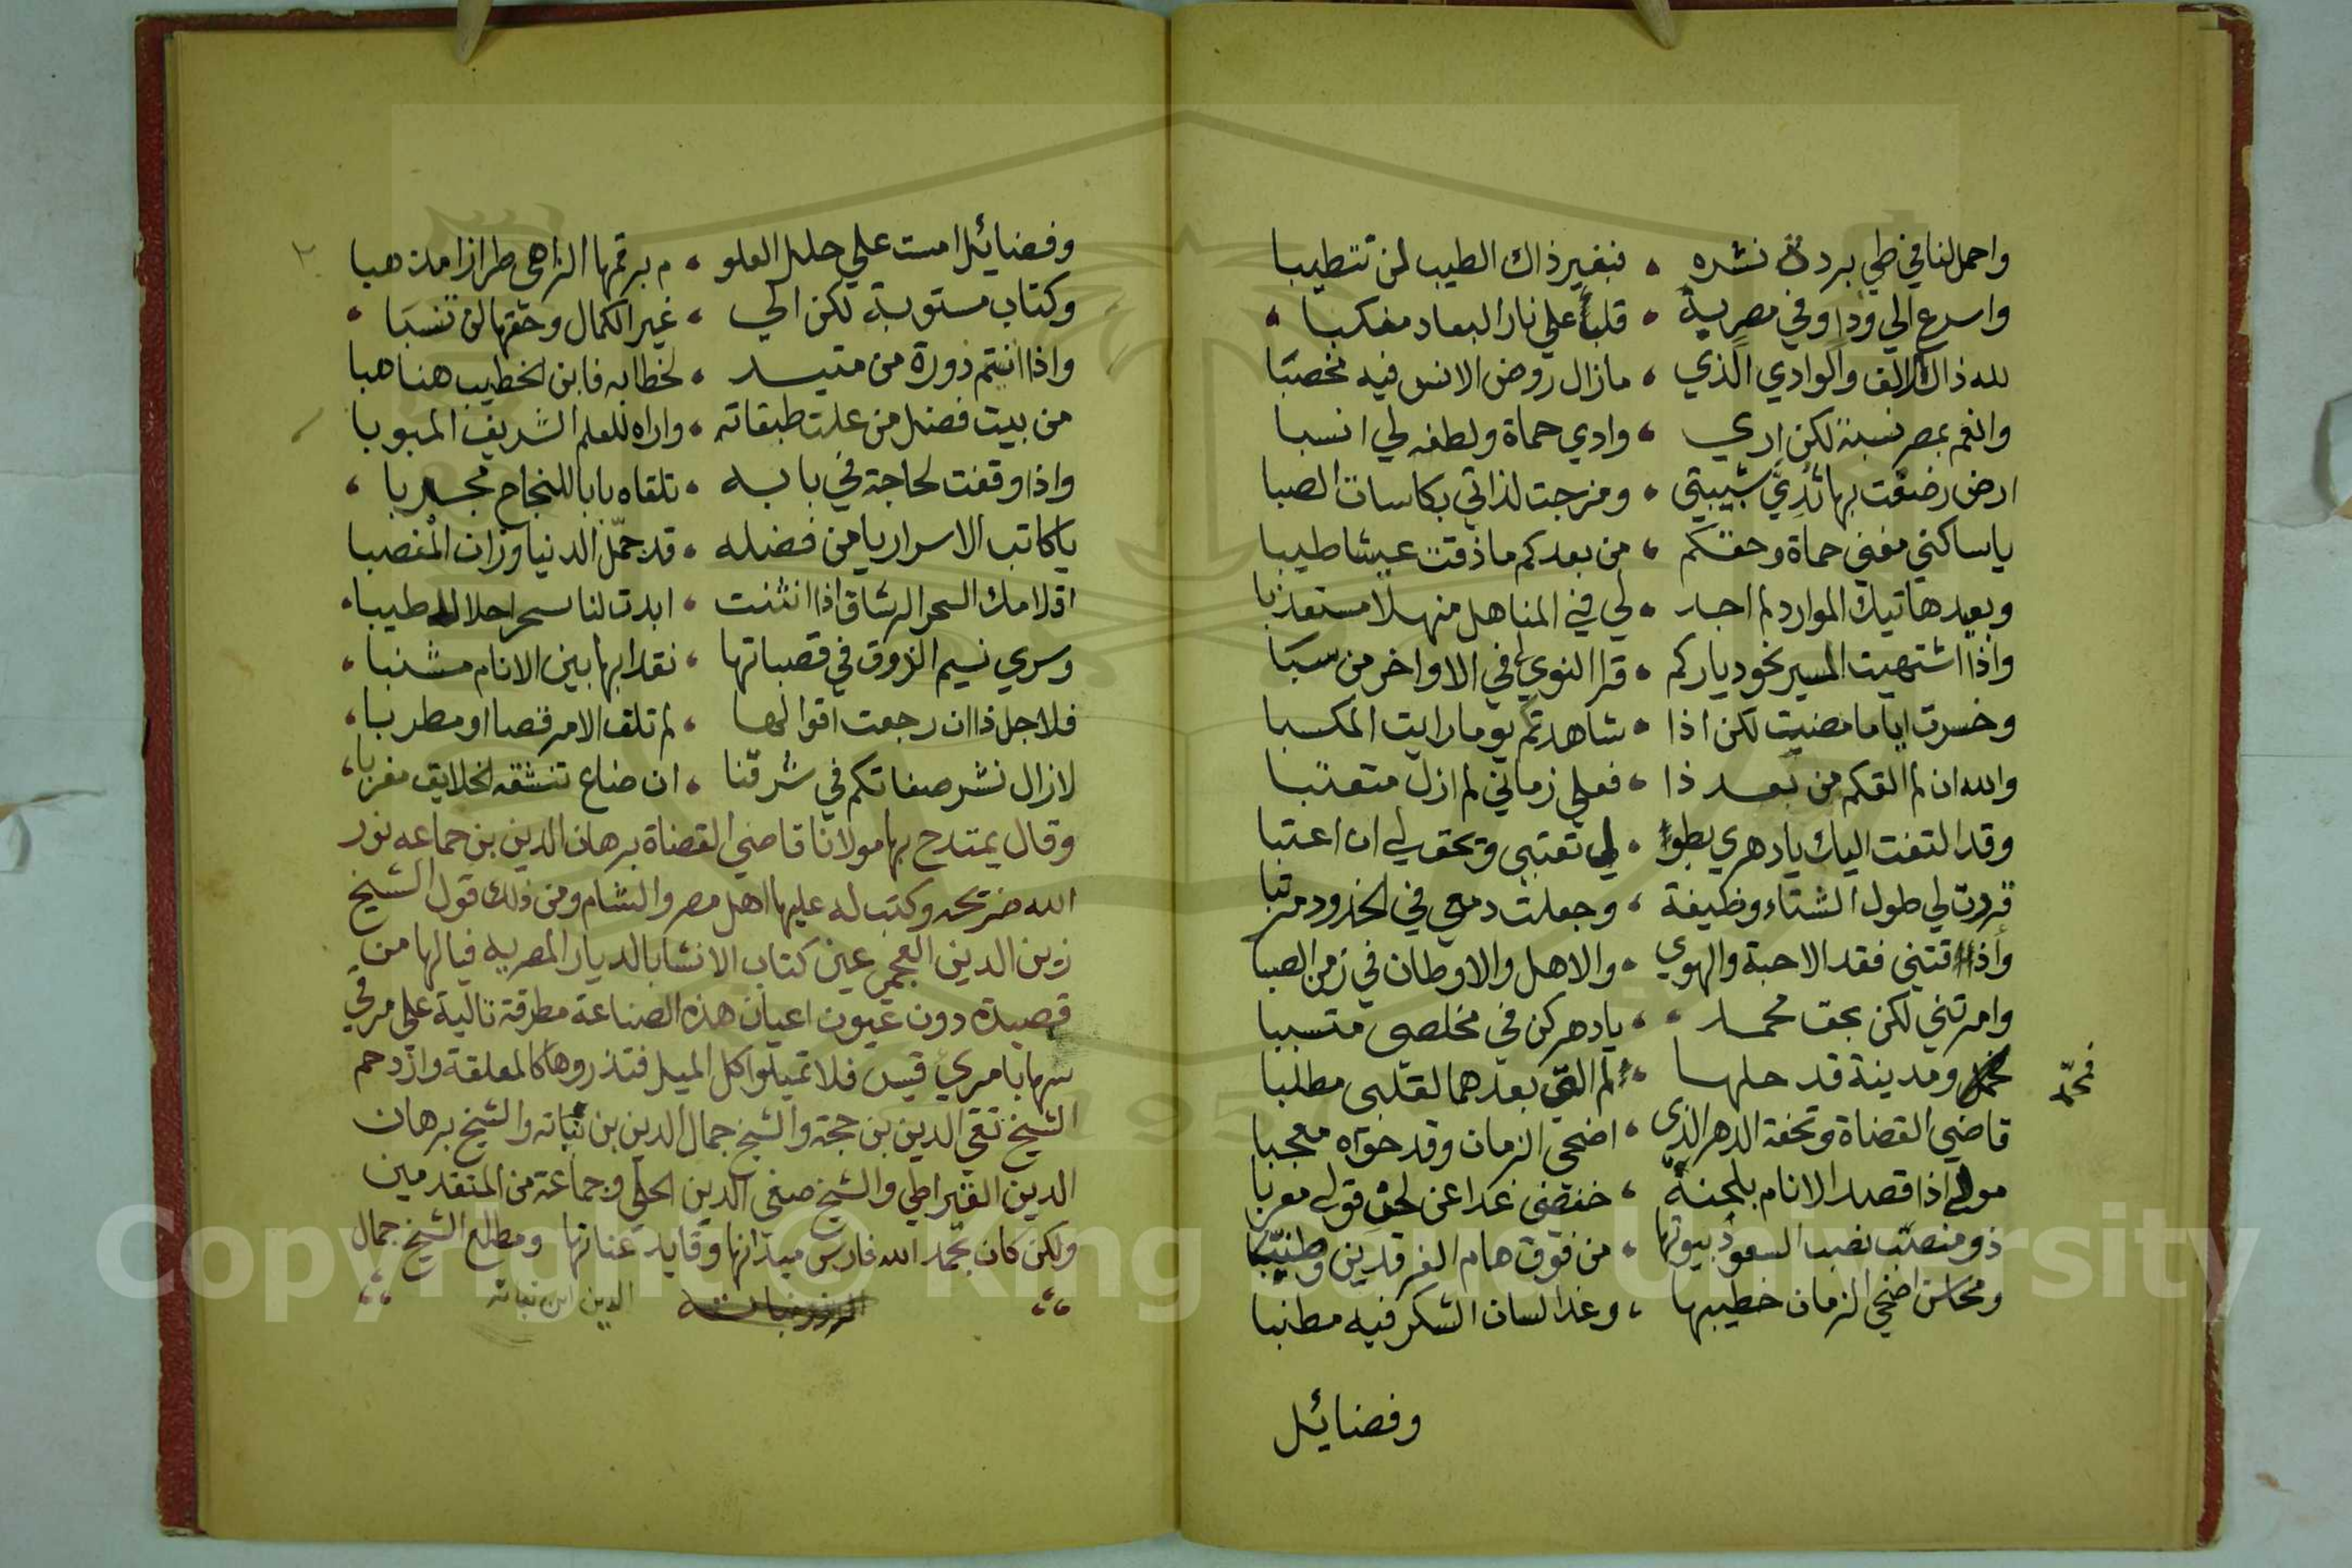 واحمل لنا في طي بردة نشره ، فبغير ذاك الطيب لن تتطيبا
واسرع الي وداو في مصرية ، قلباً علي نار البعاد مقلبا ،
لله ذاك الالف والوادي الذي ، مازال روض الانس فيه مخصبا
وانعم بمصر نسبة لكن اري ، وادي حماة ولطفه لي انسبا
ارض رضعت بها ثدي شبيبتي ، ومزجت لذاتي بكاسات الصبا
ياساكني مغني حماة وحقكم ، من بعدكم ماذقت عيشا طيبا
وبعيد هاتيك الموارد لم اجد ، لي في المناهل منهلا مستعذبا
واذا اشتهيت المسير نحو دياركم ، قرا النوي لي في الاواخر من سبا
وخسرت اياما مضيت لكن اذا ، شاهدتكم يوما رايت المكسبا
والله ان لم القكم من بعد ذا ، فعلي زماني لم ازل متعتبا
وقد التفت اليك يادهري بطو ، لي تعتبي ويحق لي ان اعتبا
قررت لي طول الشتاء وظيفة ، وجعلت دمعي في الخدود مرتبا
واذاقتني فقد الاحبة والهوي ، والاهل والاوطان في زمن الصبا
وامرتني لكن بحق محمد ، يادهر كن في مخلصي متسببا
فمحمد
ومدينة قد حلها ، لم الق بعدهما لقلبي مطلبا
قاضي القضاة وتحفة الدهر الذي ، اضحي الزمان وقد حواه معجبا
مولي اذا قصد الانام بلحنة ، خفضي غدا عن لحن قولي معربا
ذو منصب نصب السعود بيوتها ، من فوق هام الفرقدين وطنبا
ومحاسن اضحي الزمان خطيبها ، وغدا لسان الشكر فيه مطنبا
وفضايل
٢
وفضايل امست علي حلل العلو ، م برقمها الزاهي طرازا مذهبا
وكتاب مستوبة لكن الي ، غير الكمال وحقها لن تنسبا ،
واذا انتم دورة من متيسد ، لخطابه فابن الخطيب هنا هبا
من بيت فضل من علت طبقاته ، واراه للعلم الشريف المبوبا
واذا وقفت لحاجة في بابه ، تلقاه بابا للنجاح مجربا ،
ياكاتب الاسرار يامن فضله ، قد جمّل الدنيا وزان المنصبا
اقلامك السمر الرشاق اذا انثنت ، ابدت لنا سحرا حلالا طيبا ،
وسري نسيم الذوق في قصباتها ، نقدا بها بين الانام مشببا ،
فلاجل ذا ان رجعت اقوالها ، لم تلف الا مرقصا او مطربا ،
لازال نشر صفاتكم في شرقنا ، ان ضاع تنشقه الخلايق مغربا ،
وقال يمتدح بها مولانا قاضي القضاة برهان الدين بن جماعه نور
الله ضريحه وكتب له عليها اهل مصر والشام ومن ذلك قول الشيخ
زين الدين العجمي عين كتاب الانشا بالديار المصريه فيالها من
قصيدة دون عيون اعيان هذه الصناعة مطرقة تالية علي مرقي
سهابا مري قيس فلا تميلوا كل الميل فتذروها كالمعلقة وازدحم
الشيخ تقي الدين بن حجة والشيخ جمال الدين بن نباته والشيخ برهان
الدين القيراطي والشيخ صفي الدين الحلي وجماعة من المتقدمين
ولكن كان بحمد الله فارس ميدانها وقايد عنانها ومطلع الشيخ جمال
الدين ابن نباته
Copyright © King Saud University
1957